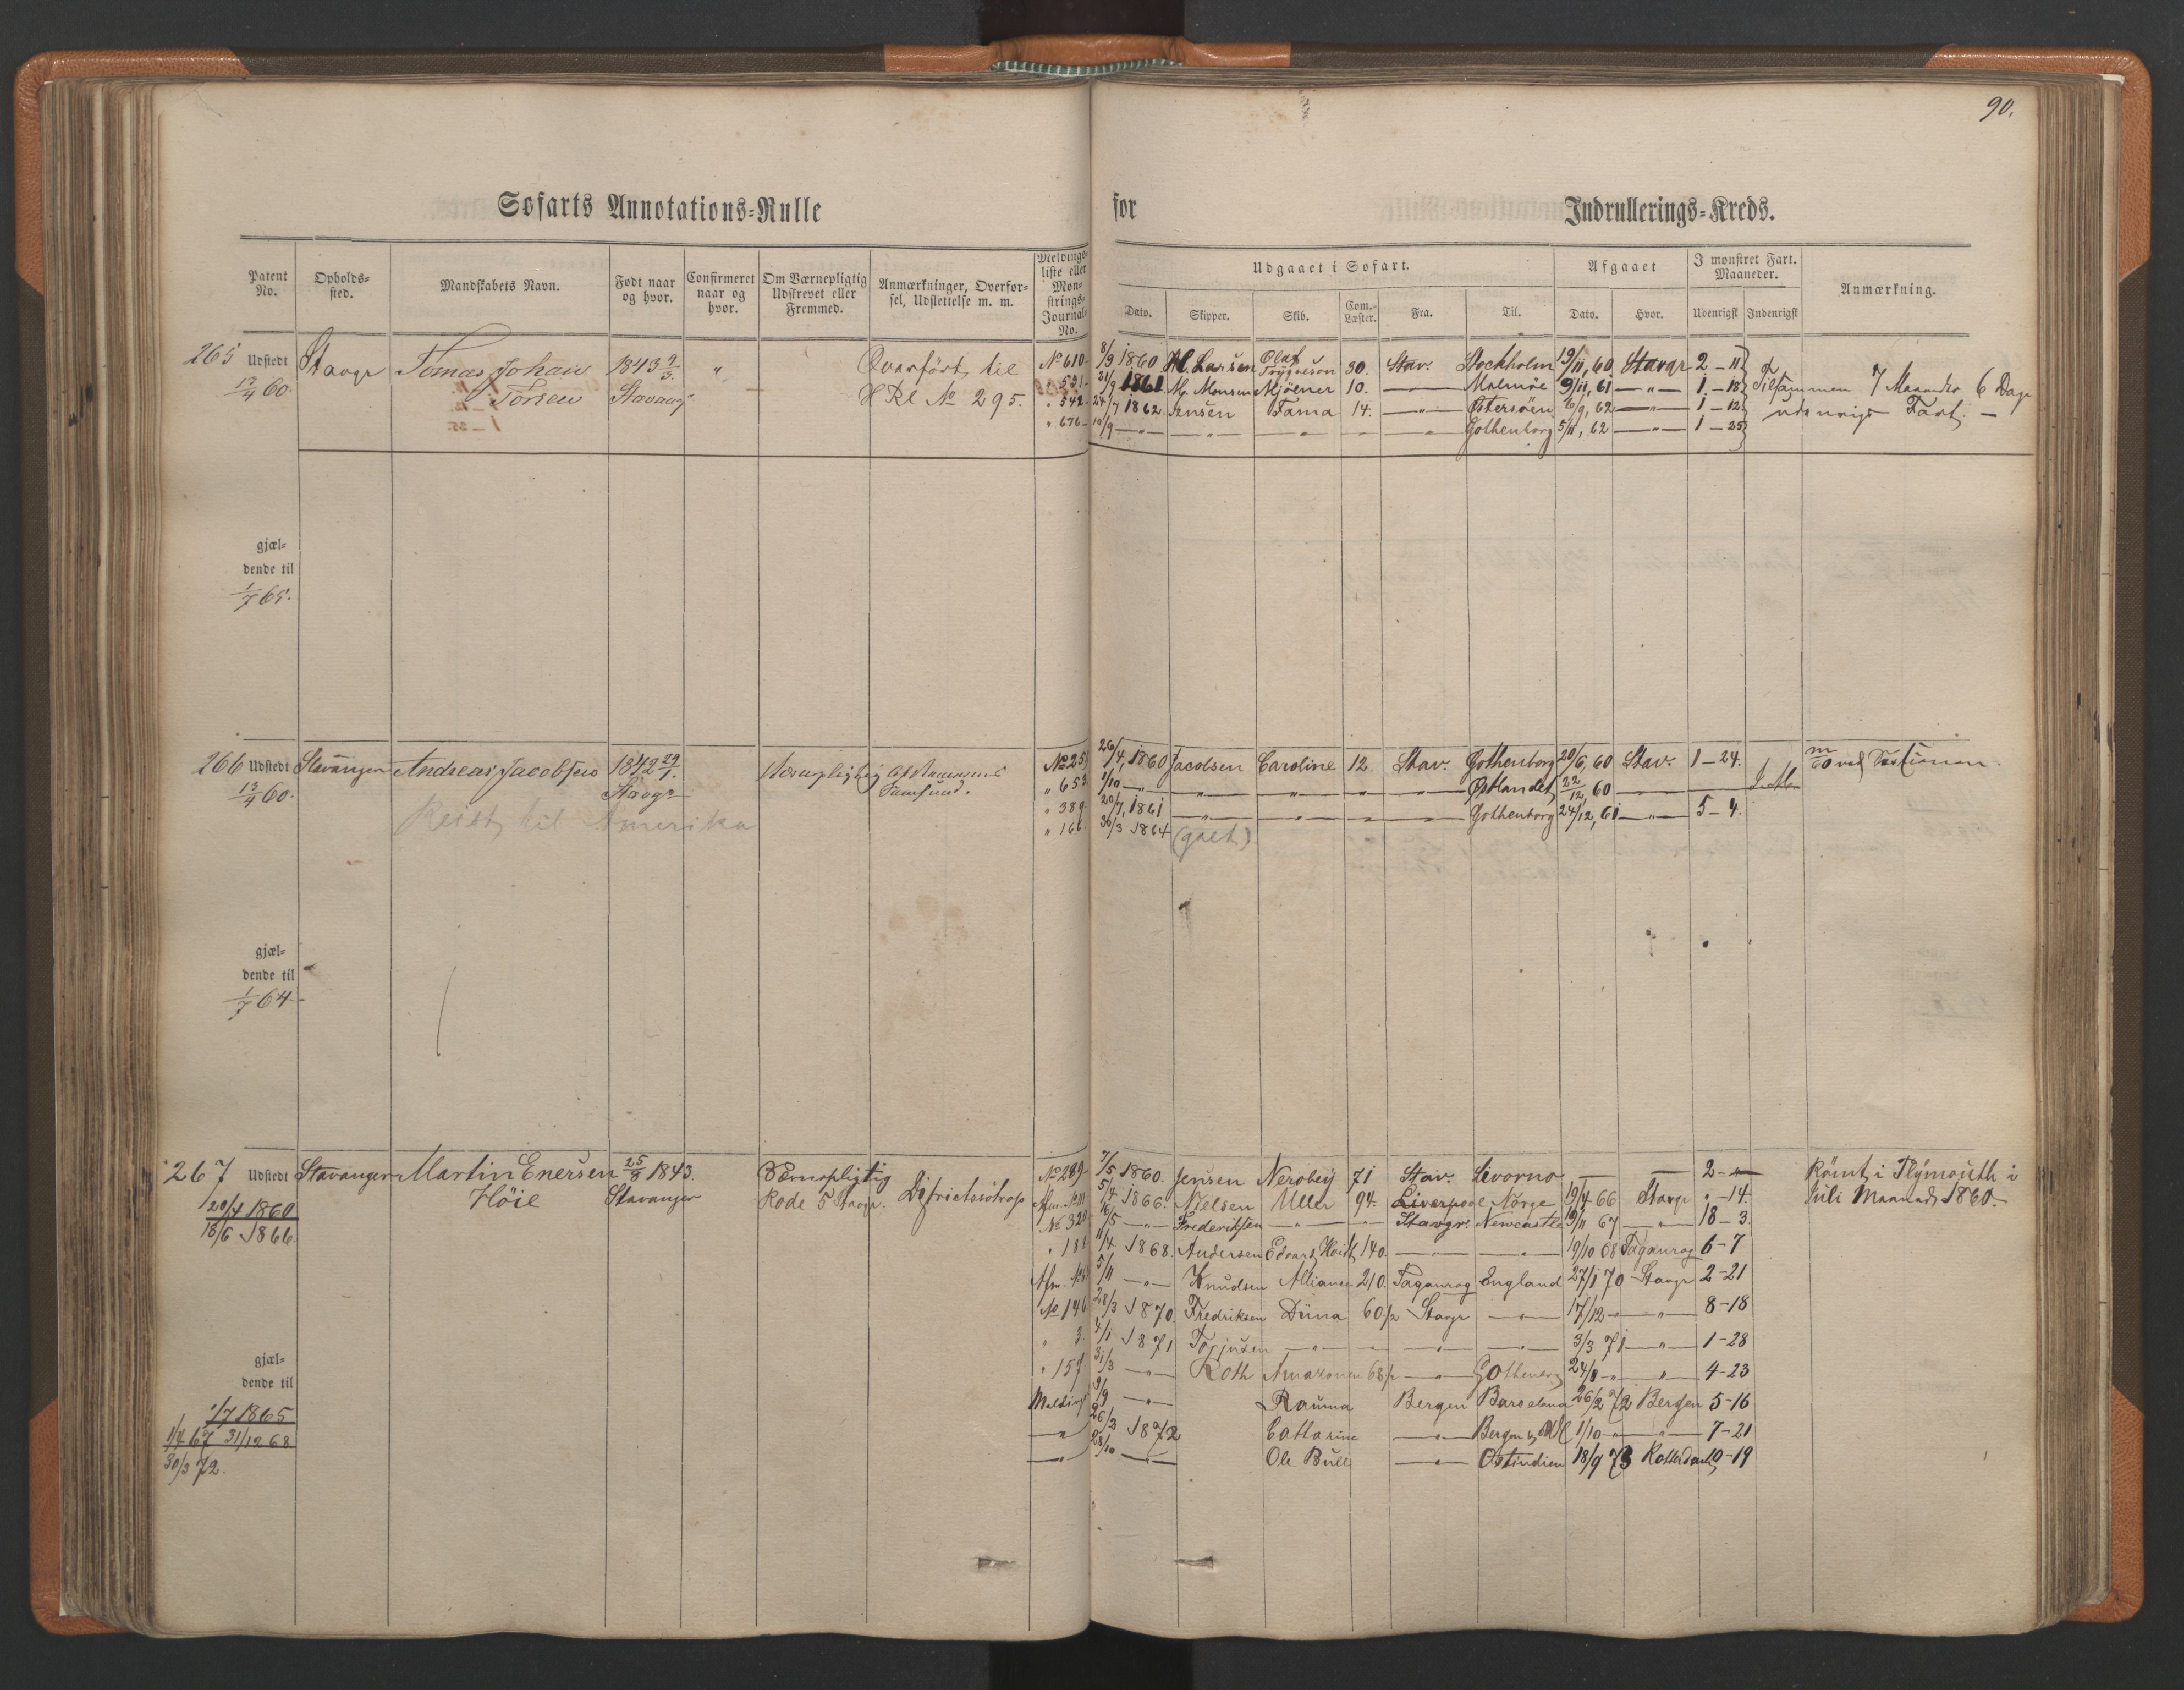 90.
Søfarts Annotations-Rulle for Indrullerings-Kreds.
Patent No. Opholds-sted. Mandskabets Navn. Født naar og hvor. Confirmeret naar og hvor. Om Værnepligtig Udskrevet eller Fremmed. Anmærkninger, Overfør-sel, Udslettelse m. m. Meldings-liste eller Mon-strings-Journal-No.
Udgaaet i Søfart. Afgaaet I mønstret Fart. Maaneder. Anmærkning.
Dato. Skipper. Skib. Com.-Læster. Fra. Til. Dato. Hvor. Udenrigsk Indenrigsk
265 Udstedt Stavgr Tomas Johan 1843 9/3 " Overført til No 610 8/9 1860 M. Larsen Olaf Trygveson 30. Stav. Stockholm 19/11, 60 Stavgr 2 – 11
13/4 60. Torsen Stavang HRl No 295. " 531 21/9 1861 M. Monsen Mjølner 10. — Malmøe 9/11, 61 — " — 1 – 18 Tilsammen 7 Maaneder 6 Dage
" 542 24/7 1862 Jensen Fama 14. — " — Østersøen 6/9, 62 — " — 1 – 12 udenrigs Fart. –
" 676 10/9 — " — — " — — " — — " — Gothenborg 5/11, 62 — " — 1 – 25
gjæl-
dende til
1/7 65.
266 Udstedt Stavanger Andreas Jacobsen 1842 29/1. Værnepligtig No 251 26/4, 1860 Jacobsen Caroline 12. Stav. Gothenborg 20/6, 60 Stav. 1 – 24.
13/4 60. Stavgr " 653 1/10 — " — — " — — " — " — " — Østlandet 22/12, 60 — " —
Reist til Amerika " 389 20/7, 1861 — " — — " — " — " — Gothenborg 24/12, 61 — " — 5 – 4.
" 166 30/3 1864 (gaet)
gjæl-
dende til
1/7 64
267 Udstedt Stavanger Martin Enersen 25/8 1843. Værnepligtig No 289 7/5 1860. Jensen 71 Stav. Livorno — — 2 – " Römt i Plymouth i
20/4 1860 Höie Stavanger Rode 5 Stavgr. 1866. Nielsen Uller 94. Liverpool Norge 19/4 66 Stavgr " – 14. Juli Maaned 1860.
18/6 1866 No 320 16/5 — " — Frederiksen — " — " Stavgr. Newcastle 19/11 67 — " — 18 – 3.
" 181 11/4 1868. Andersen 140. — " — — " — 19/10 68 Taganrog 6 – 7
5/11 — " — Knudsen Alliance 210. Taganrog England 27/1 70 Stavgr 2 – 21
No 146 28/3 1870. Fredriksen Düna 60 1/2 Stavgr — " — 17/12 — " — " — 8 – 18
" 3 4/1 1871 — " — " — " — — " — 3/3 71 — " — 1 – 28
gjæl-
dende til " 157 31/3 — " — Roth Amazonen — " — Gothenborg 24/8 — " — " — 4 – 23
1/7 1865 9/9 — " — Rauma Bergen Barcelona 26/2 72 Bergen 5 – 16
1/4 67 31/12 68 — " — 26/3 1872 Catharine — " — 1/10 — " — " — 7 – 21
30/3 72. — " — 28/10 — " — Ole Bull — " — Ostindien 18/9 73 Rotterdam 10 – 19